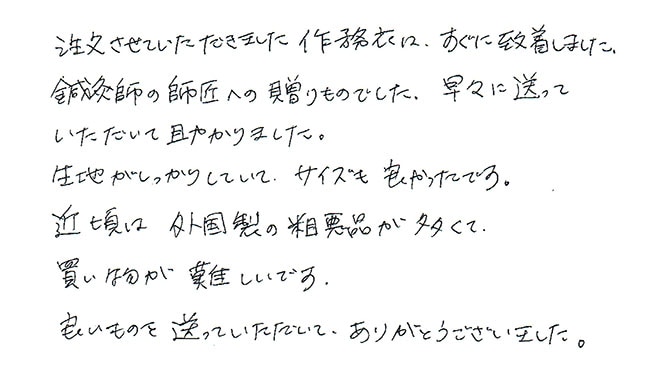 注文させていただきました作務衣は、すぐに到着しました。
鍼灸師の師匠への贈りものでした。早々に送って
いただいて助かりました。
生地がしっかりしていて、サイズも良かったです。
近頃は外国製の粗悪品が多くて、
買い物が難しいです。
良いものを送っていただいて、ありがとうございました。